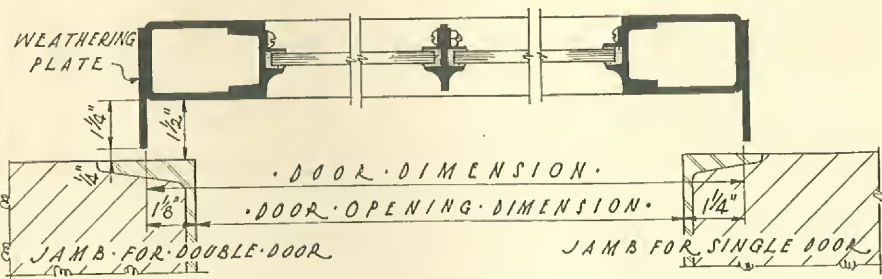 WEATHERING
PLATE
1 1/4"
1 1/2"
1/4"
·DOOR·DIMENSION·
1 1/8"
·DOOR·OPENING·DIMENSION·
1 1/4"
JAMB·FOR·DOUBLE·DOOR
JAMB FOR SINGLE DOOR